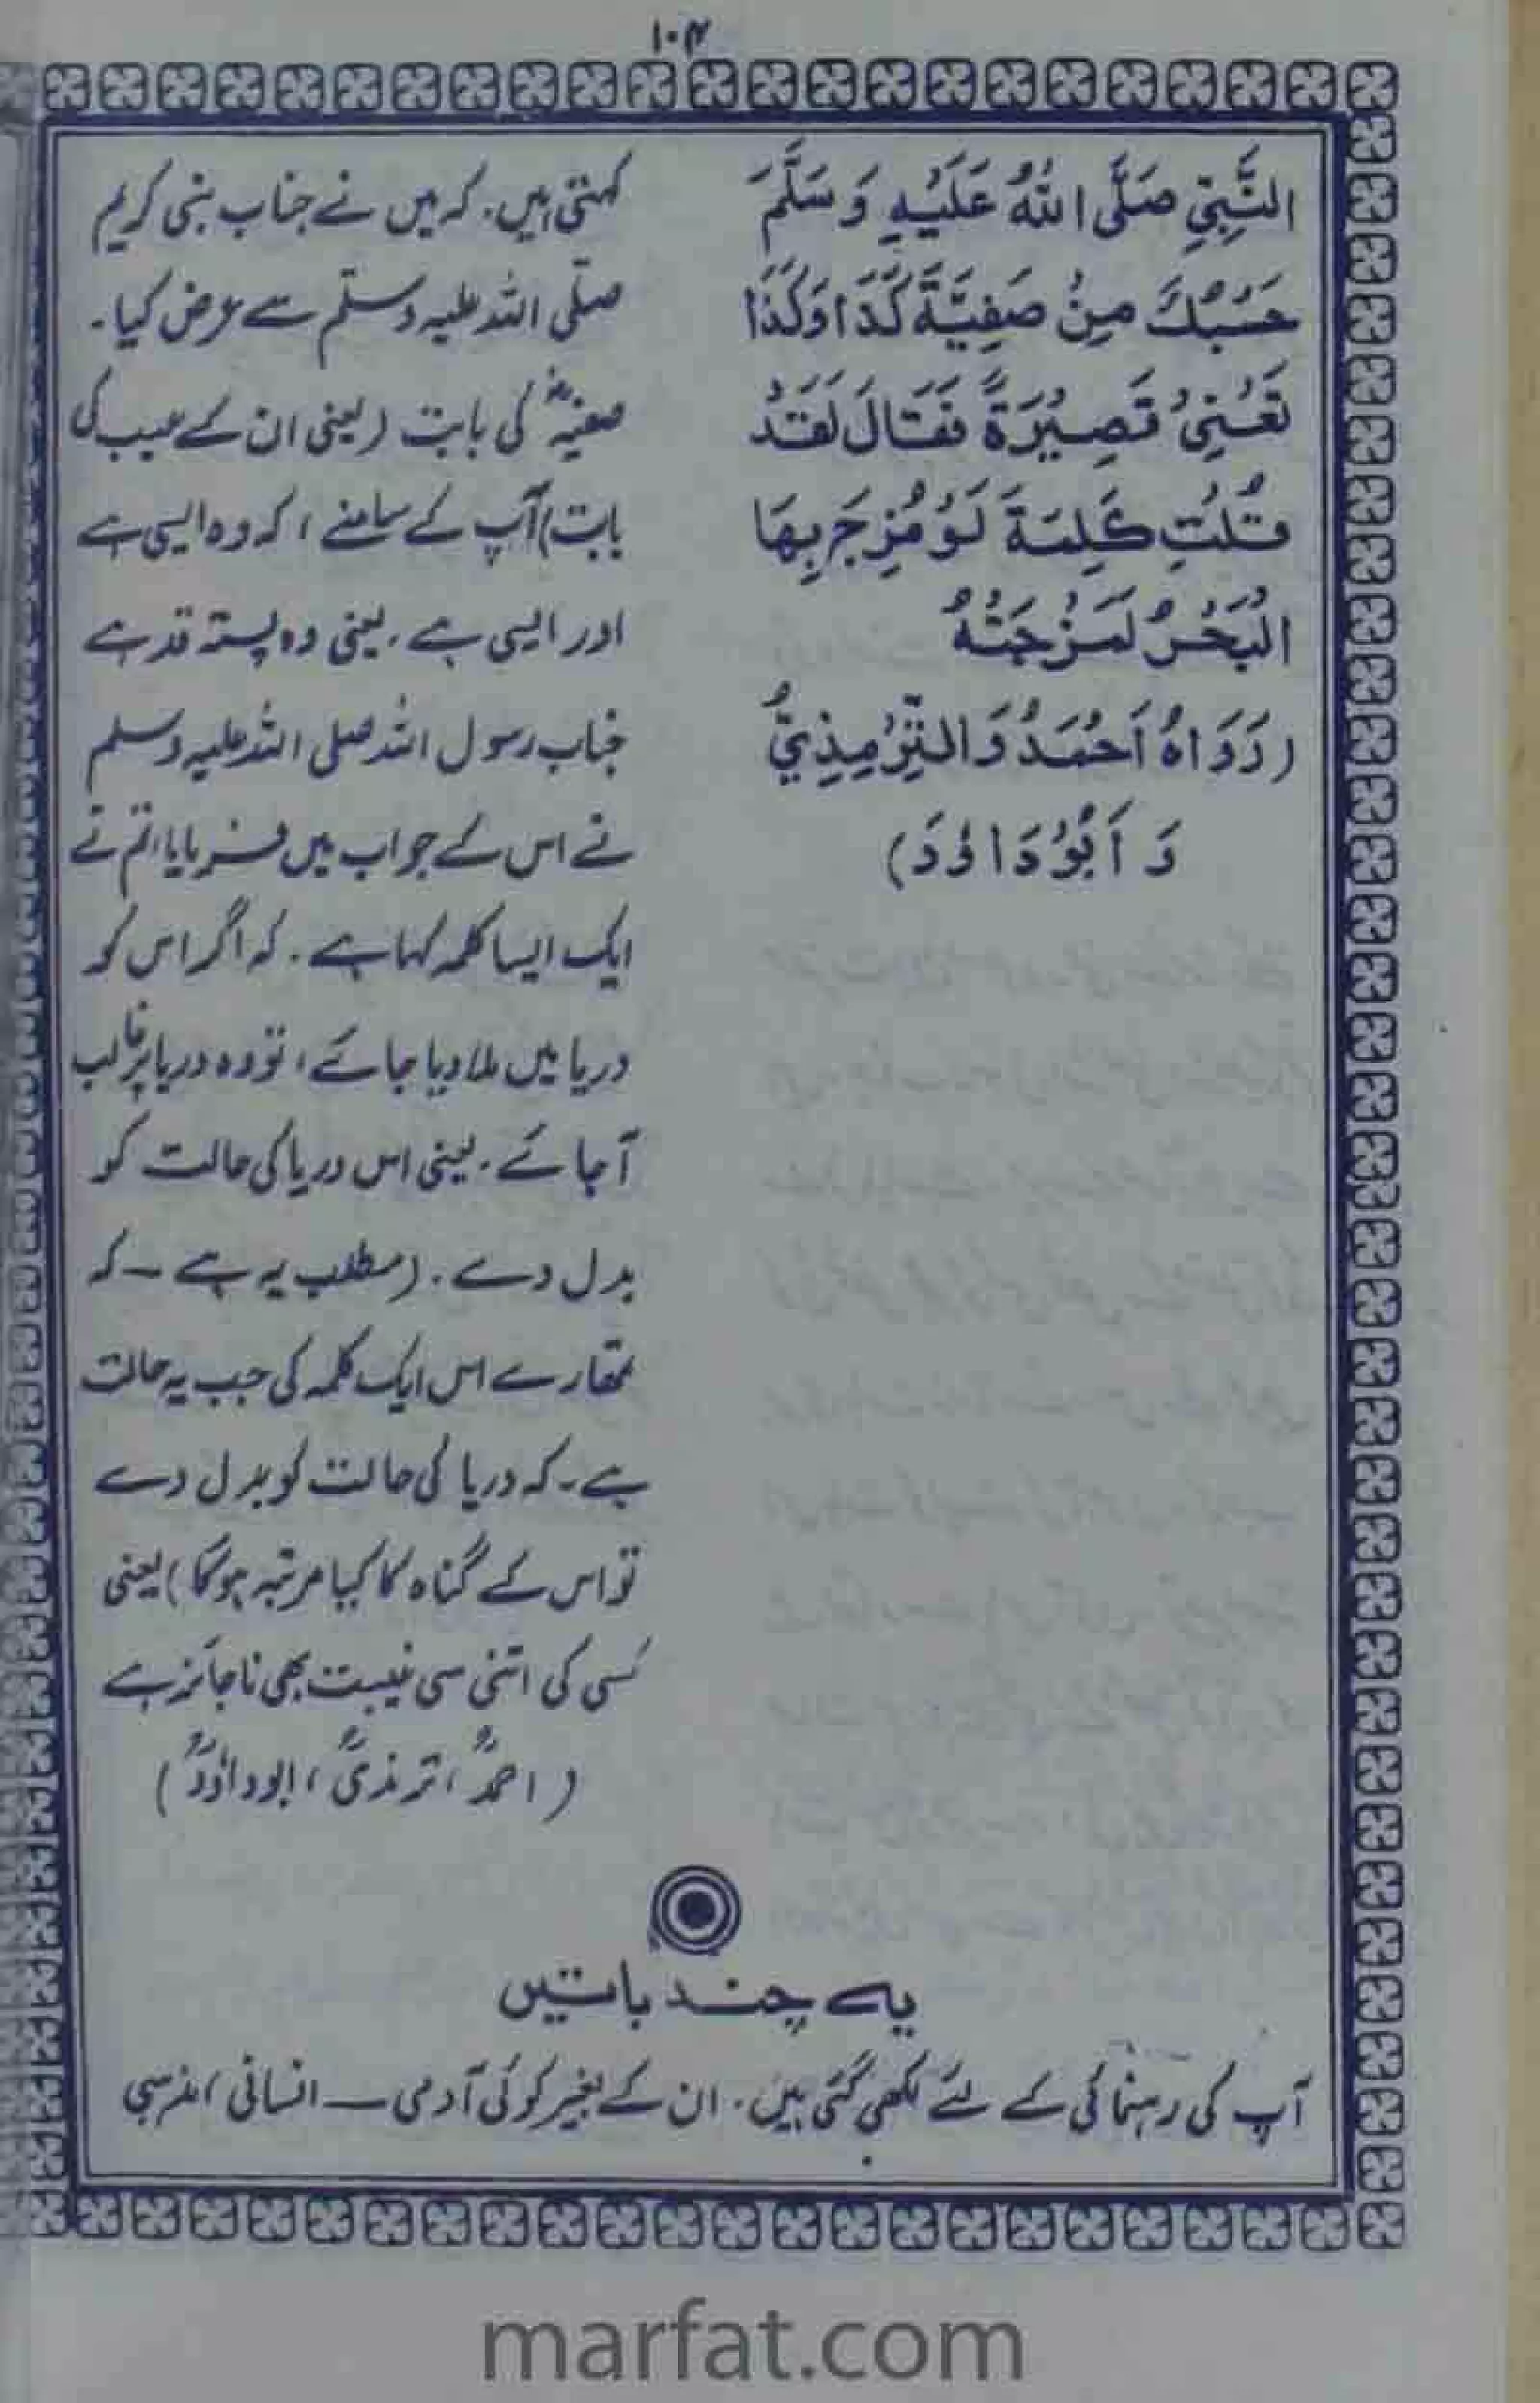 ۱۰۴
النَّبِيِّ صَلَّى اللهُ عَلَيْهِ وَسَلَّمَ
حَسْبُكَ مِنْ صَفِيَّةَ كَذَا وَكَذَا
تَعْنِيْ قَصِيْرَةً فَقَالَ لَقَدْ
قُلْتِ كَلِمَةً لَوْ مُزِجَ بِهَا
الْبَحْرُ لَمَزَجَتْهُ
(رَوَاهُ أَحْمَدُ وَالتِّرْمِذِيُّ
وَ أَبُوْدَاؤدَ)
کہتی ہیں۔ کہ میں نے جناب نبی کریم
صلّی اللہ علیہ وسلّم سے عرض کیا۔
صفیہؓ کی بابت (یعنی ان کے عیب کی
بابت) آپ کے سامنے، کہ وہ ایسی ہے
اور ایسی ہے۔ یعنی وہ پستہ قد ہے
جناب رسول اللہ صلی اللہ علیہ وسلم
نے اس کے جواب میں فرمایا، تم نے
ایک ایسا کلمہ کہا ہے۔ کہ اگر اس کو
دریا میں ملا دیا جائے، تو وہ دریا پر غالب
آجائے۔ یعنی اس دریا کی حالت کو
بدل دے۔ (مطلب یہ ہے ۔ کہ
تمھارے اس ایک کلمہ کی جب یہ حالت
ہے۔ کہ دریا کی حالت کو بدل دے
تو اس کے گناہ کا کیا مرتبہ ہوگا) یعنی
کسی کی اتنی سی غیبت بھی ناجائز ہے
(احمدؒ، ترمذیؒ، ابوداؤدؒ)
یہ چند باتیں
آپ کی رہنمائی کے لئے لکھی گئی ہیں۔ ان کے بغیر کوئی آدمی ـــ انسانی، مذہبی
marfat.com